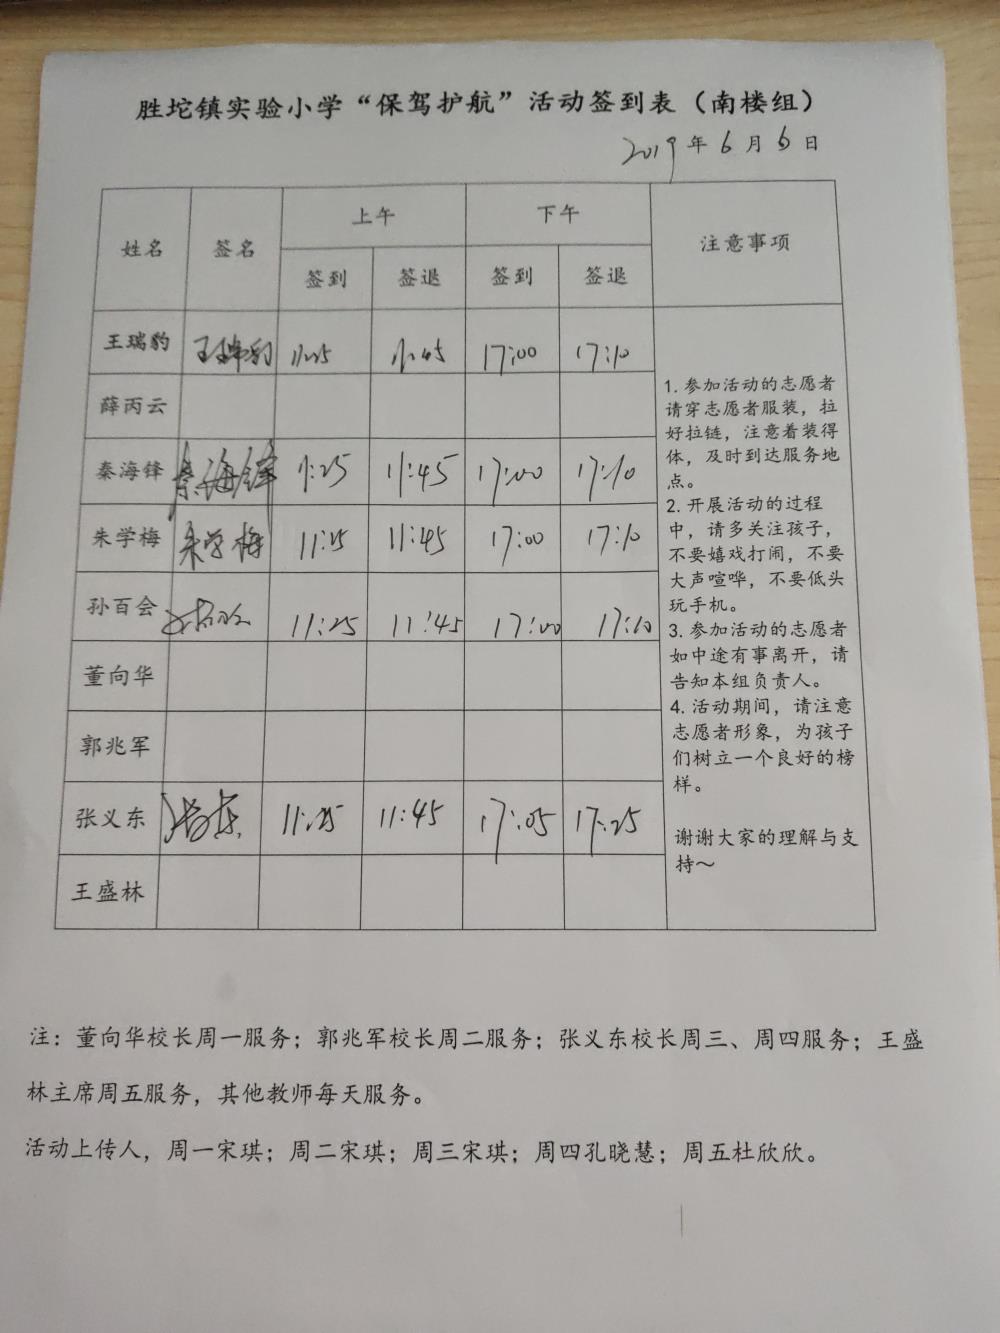 胜坨镇实验小学“保驾护航”活动签到表（南楼组）
2019年6月6日
姓名 签名 上午 下午 注意事项
签到 签退 签到 签退
王瑞豹 王瑞豹 11:25 11:45 17:00 17:10
薛丙云
秦海锋 秦海锋 11:25 11:45 17:00 17:10
朱学梅 朱学梅 11:25 11:45 17:00 17:10
孙百会 11:25 11:45 17:00 17:10
董向华
郭兆军
张义东 11:25 11:45 17:05 17:25
王盛林
1. 参加活动的志愿者
请穿志愿者服装，拉
好拉链，注意着装得
体，及时到达服务地
点。
2. 开展活动的过程
中，请多关注孩子，
不要嬉戏打闹，不要
大声喧哗，不要低头
玩手机。
3. 参加活动的志愿者
如中途有事离开，请
告知本组负责人。
4. 活动期间，请注意
志愿者形象，为孩子
们树立一个良好的榜
样。
谢谢大家的理解与支
持～
注：董向华校长周一服务；郭兆军校长周二服务；张义东校长周三、周四服务；王盛
林主席周五服务，其他教师每天服务。
活动上传人，周一宋琪；周二宋琪；周三宋琪；周四孔晓慧；周五杜欣欣。